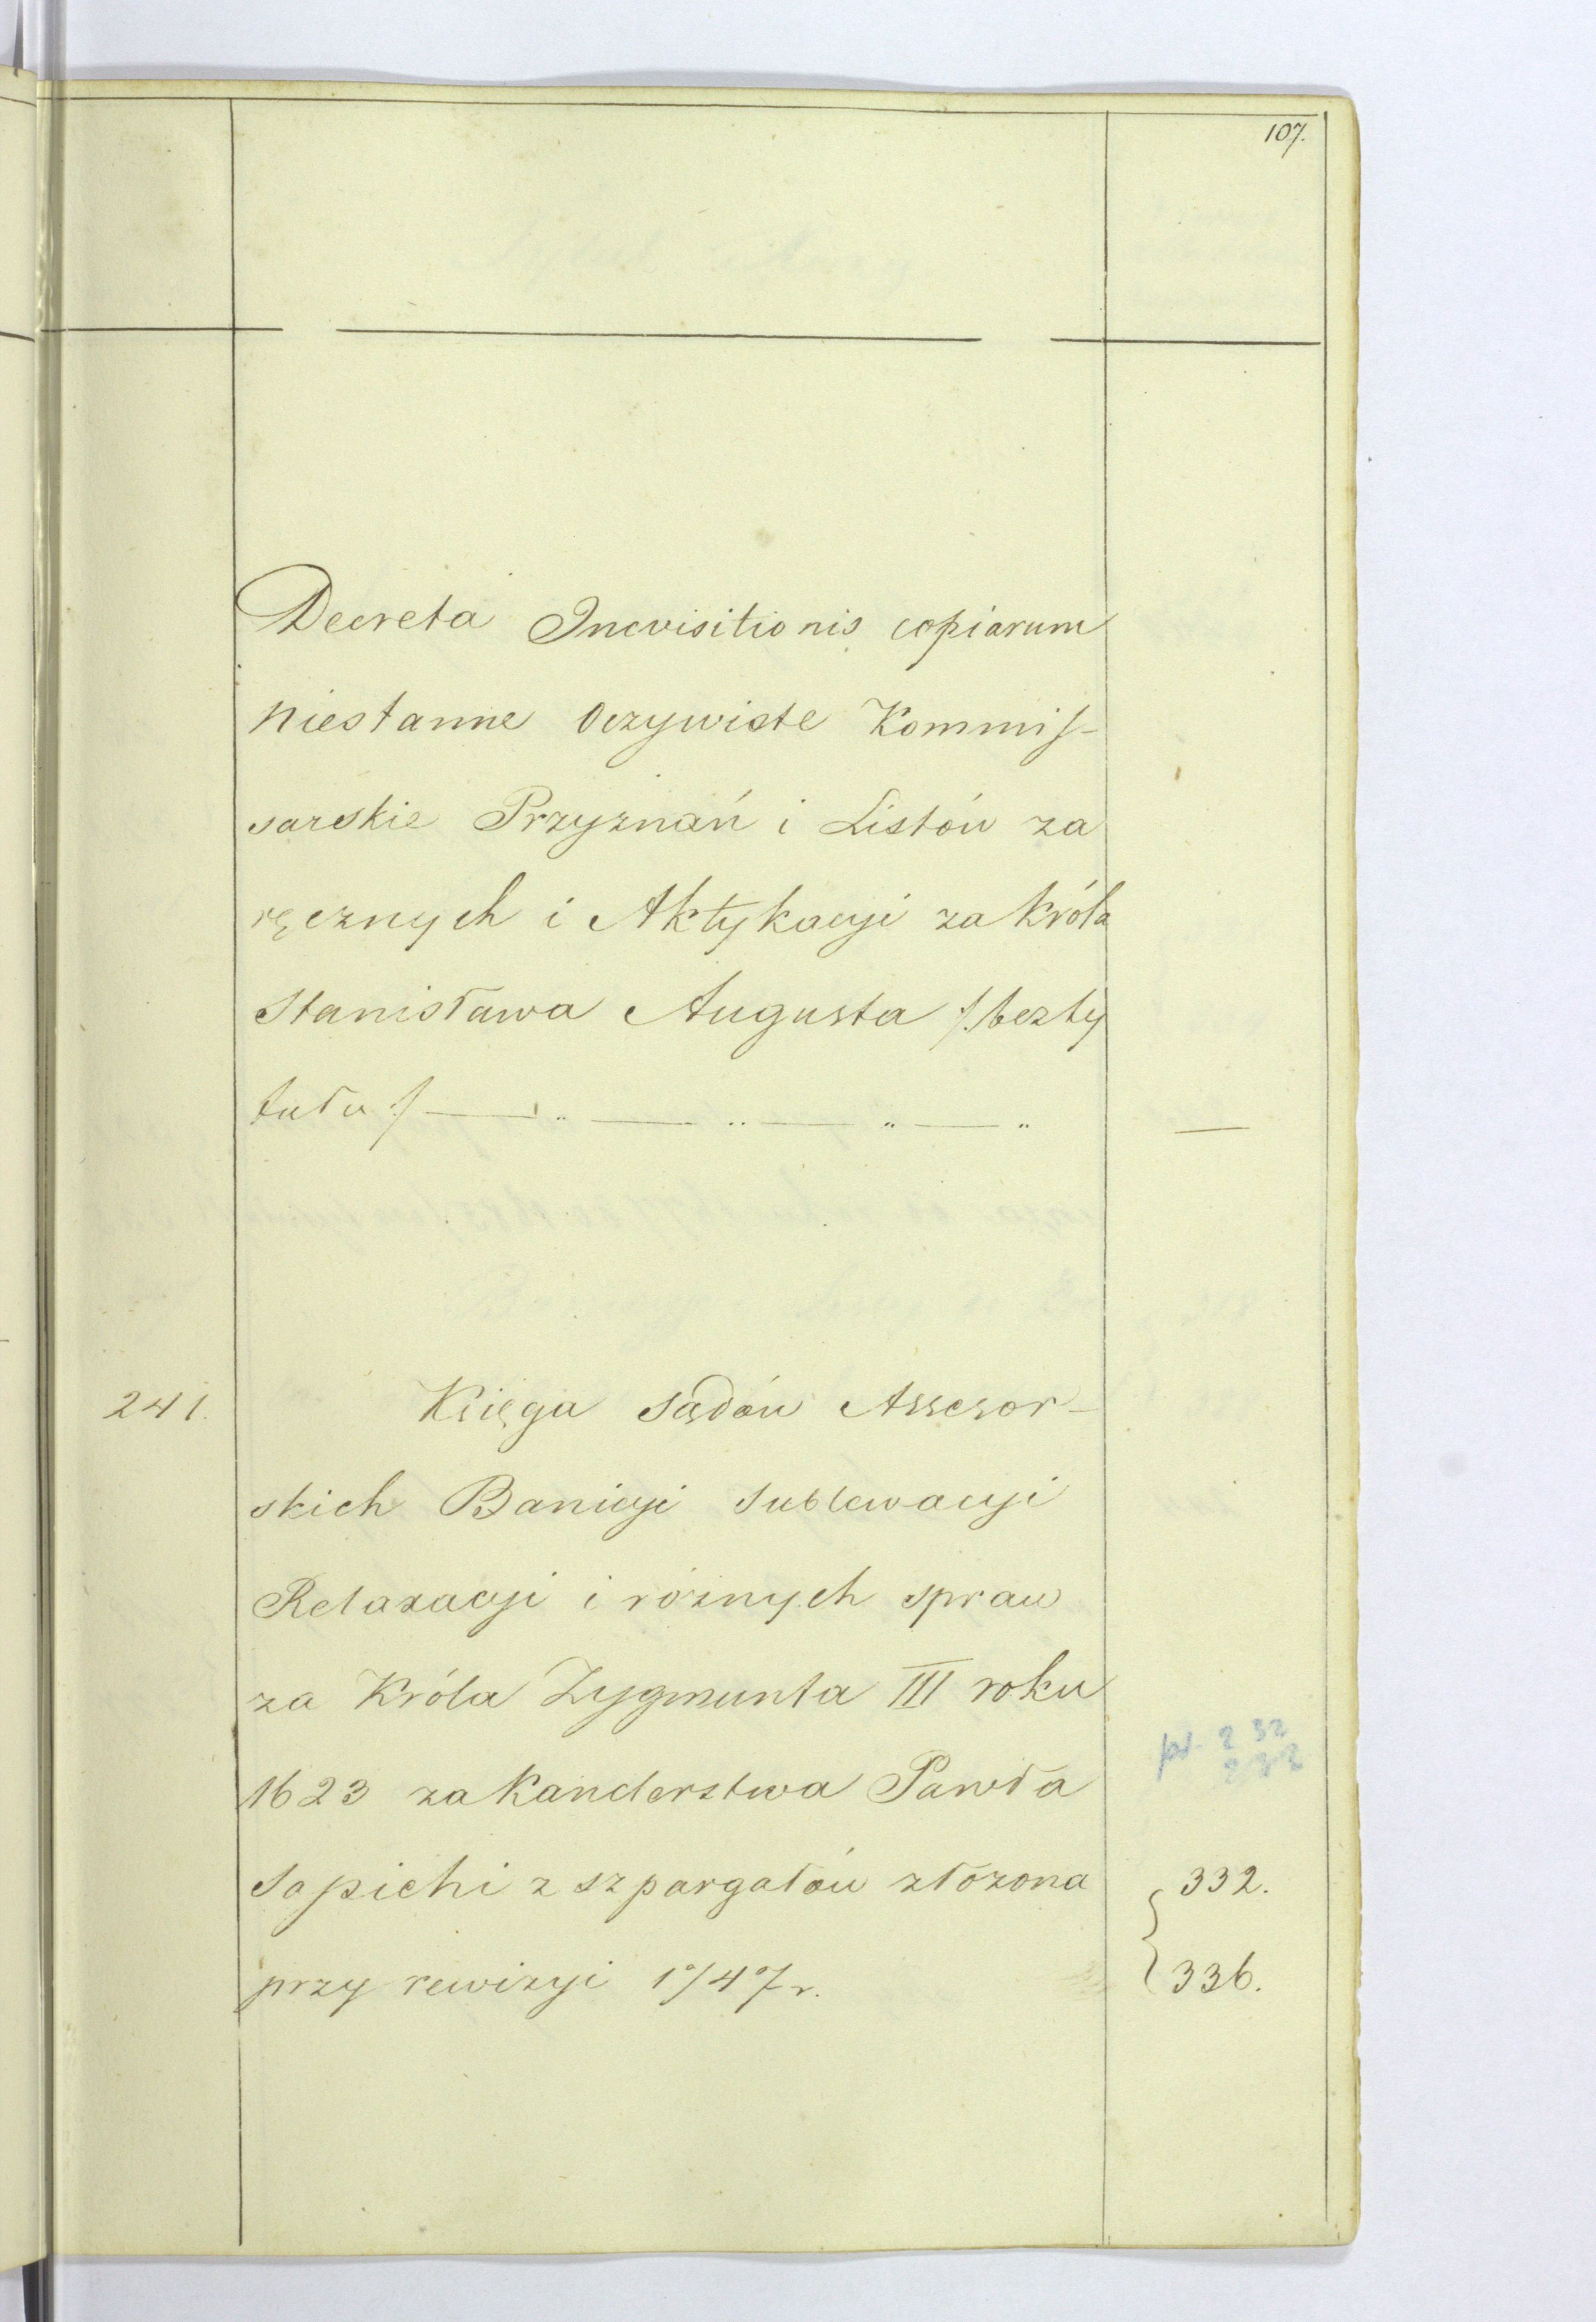 107.
Decreta Incvisitionis copiarum
niestanne Oczywiste Kommis-
sarskie Przyznań i Listów za
ręcznych i Aktykacyi za Króla
Stanisława Augusta /:bezty
tułu:/ — „ — „ — „ — „ —
241. Księga Sądów Assesor-
skich Banicyi Sublewacyi
Relaxacyi i rożnych spraw
za Króla Zygmunta III roku
pol. 232
232
1623 za Kanclerstwa Pawła
Sapiehi z szpargałów złożona 332.
przy rewizyi 1747 r. 336.